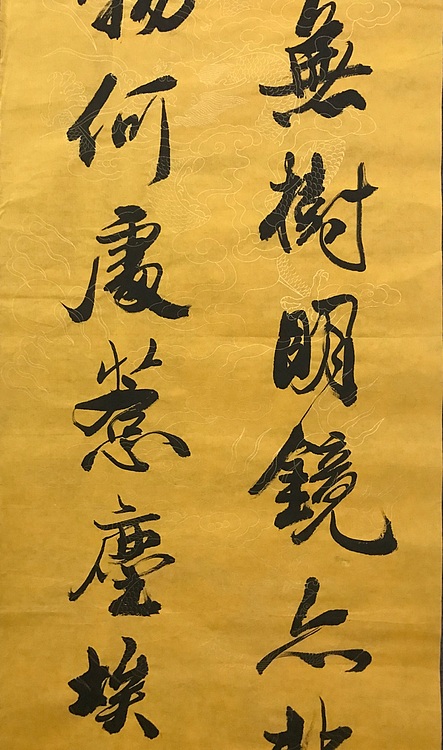 無樹明鏡亦
物何處惹塵埃